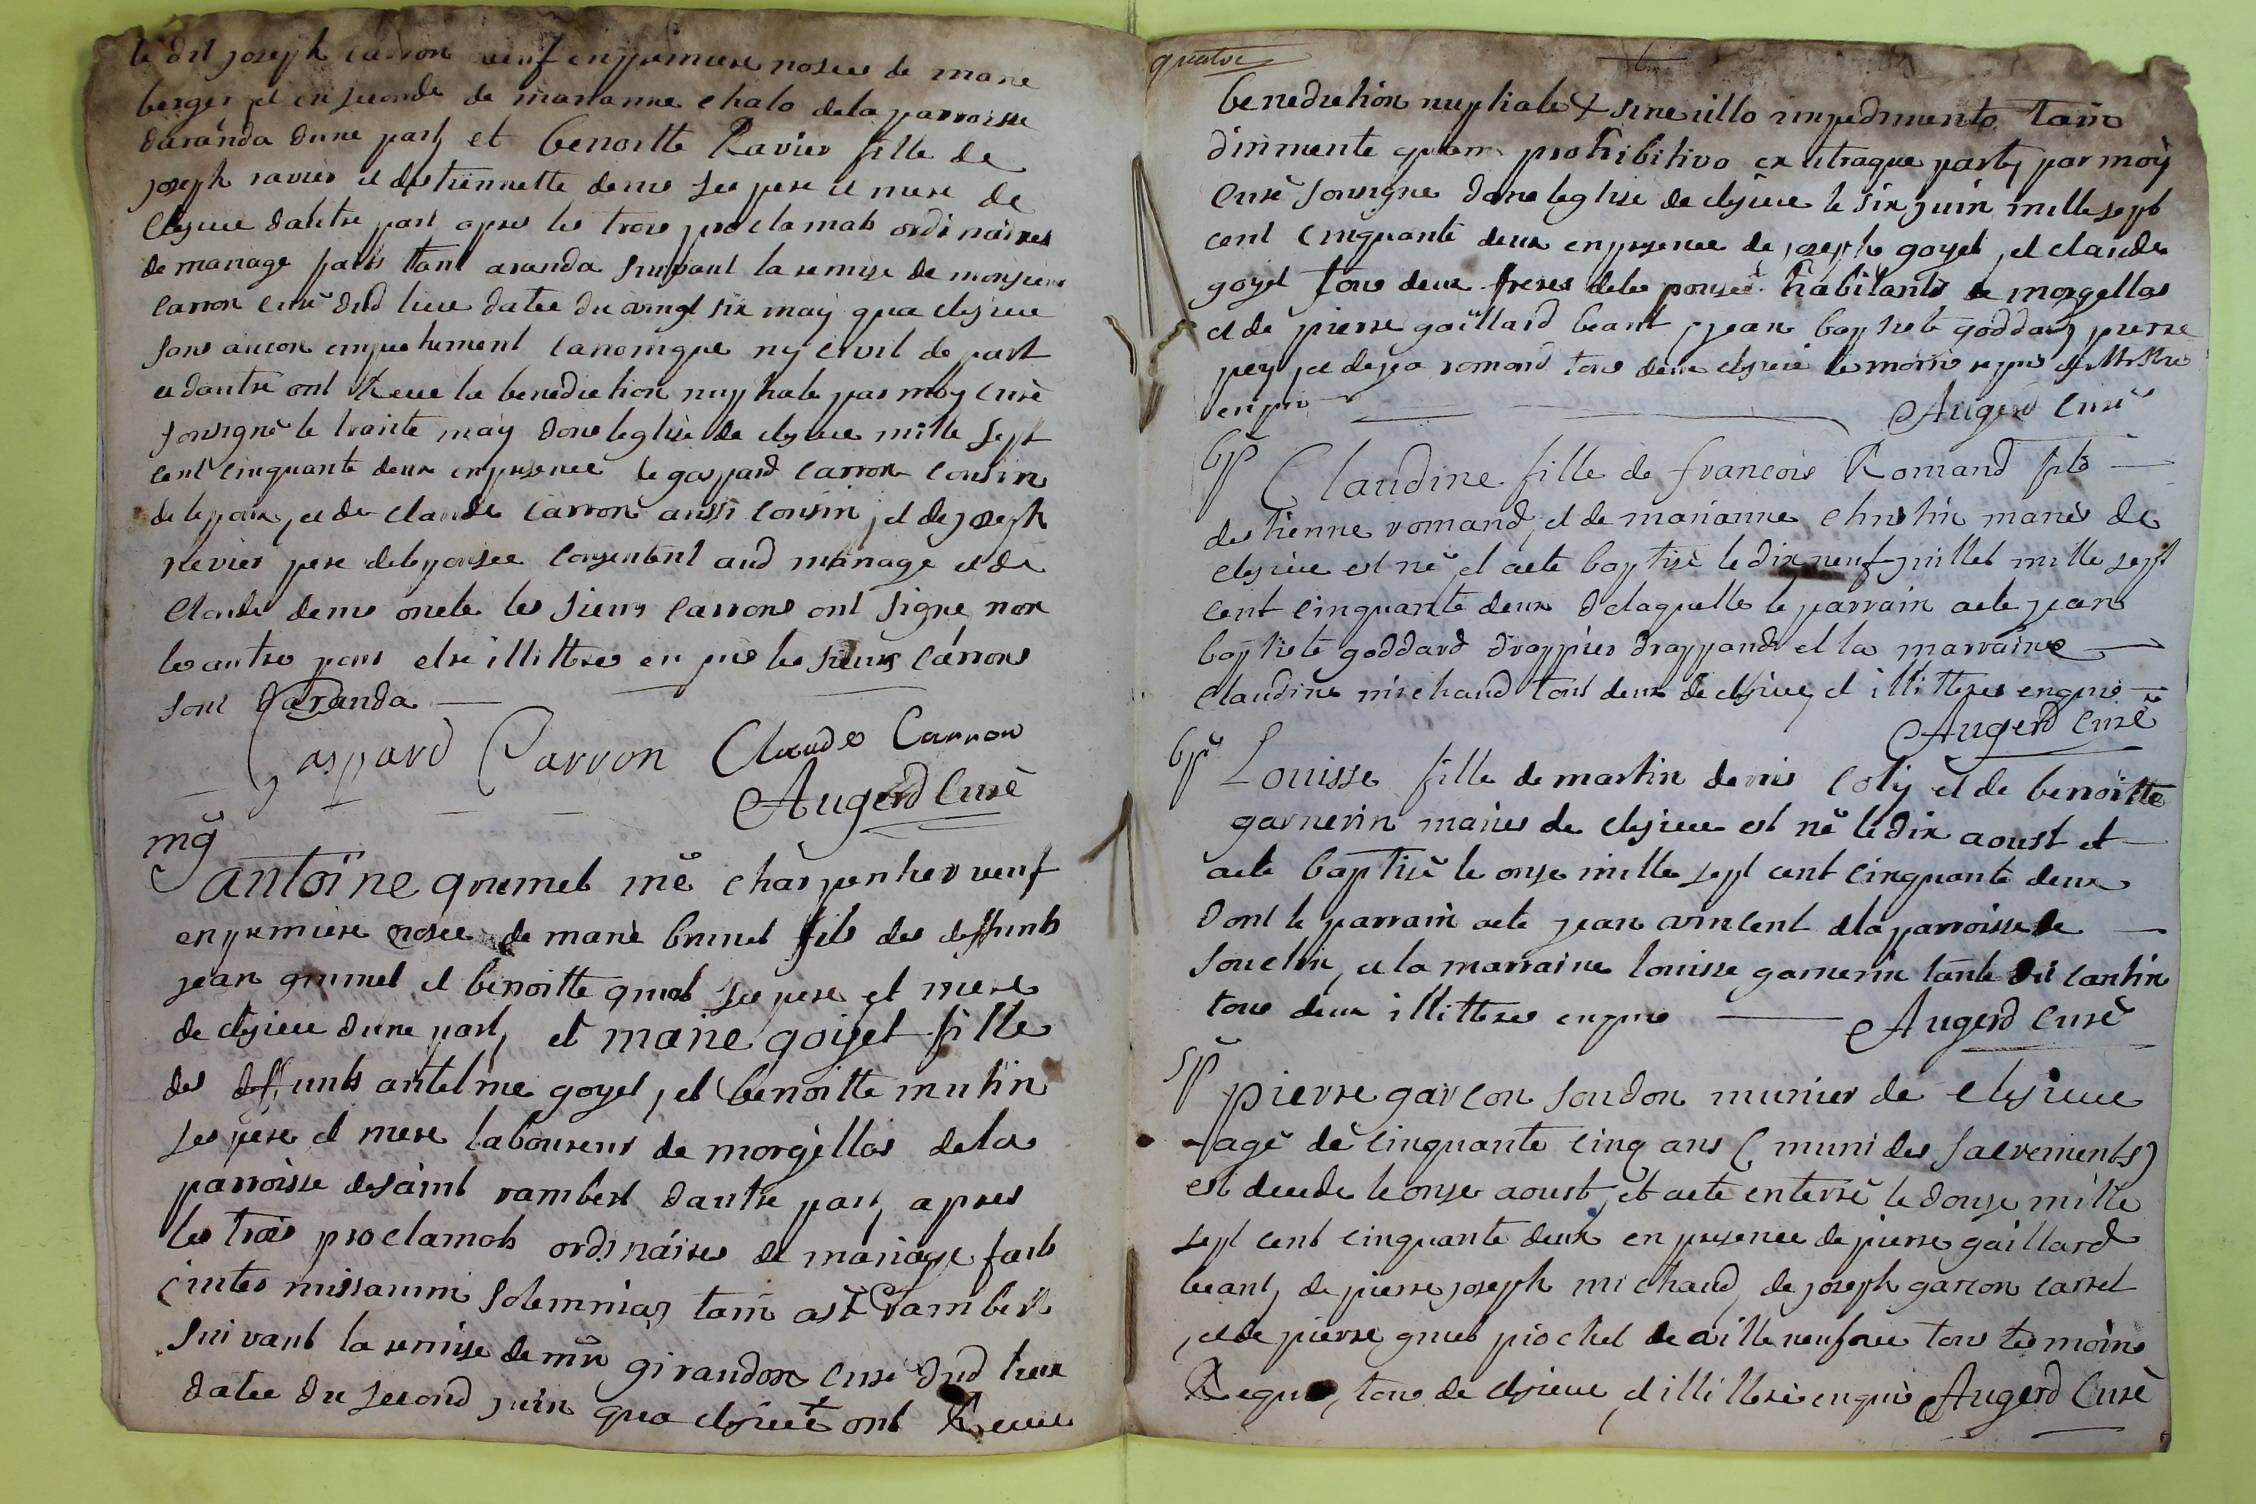 le dit joseph carron veuf en premiere noses de marie
berger et en seconde de marianne chalo dela parroisse
daranda dune part et benoitte Ravier fille de
joseph ravier et destiennette denis ses pere et mere de
cleyzieu dautre part apres les trois proclamats ordinaires
de mariage faits tant aranda suivant la remise de monsieur
carron curè dud lieu datee du vingt six may qua cleyzieu
sans aucon empechement canonique ny civil de part
et dautre ont Receu la benediction nuptiale par moy curè
sousignè le trante may dans leglise de cleyzieu mille sept
cent cinquante deux en presence de gaspard carron cousin
de lepoux, et de claude carron aussi cousin, et de joseph
revier pere delepousee consentent aud mariage et de
claude denis oncle les sieurs carrons ont signe non
les autres pour etre illitteres enquis les sieurs carrons
sont daranda
Gaspard Carron Claude Carron
Augerd Curè
mg
antoine grumet mè charpentier veuf
en premiere noses de marie brunet fils des deffunts
jean grumel et benoitte gruel ses pere et mere
de cleyzieu dune part, et marie goiyet fille
des deffunts antelme goyet, et benoitte mutin
ses pere et mere laboureurs de morgellas dela
parroisse desaint rambert dautre part, apres
les trois proclamats ordinaires de mariage faits
inter missarum solemnias tam a st rambert
suivant la remise de mr girandon curè dud lieux
datee du second juin qua cleyzieu + ont Receu
quatre
benediction nuptiale + sine ullo impedimento tam
dirimente quam prohibitivo ex utraque parte, par moy
curè sousigne dans leglise de cleyzieu le six juin mille sept
cent cinquante deux en presence de joseph goyet, et claude
goyet tous deux freres dele pousèe habitants de morgellas
et de pierre gaillard beant, jean baptiste goddard, pierre
pey, et de jea romand tous deux cleyzieu temoins requis illittere
enquis Augerd Curè
bp Claudine fille de francois Romand fils
destienne romand, et de marianne christin mariès de
cleyzieu est nè et aetè baptisè le dix neuf juillet mille sept
cent cinquante deux delaquelle le parrain aete jean
baptiste goddard drappier drappand et la marraine
claudine michaud tous deux de cleyzieu, et illitteres enquis
Augerd Curè
bp Louisse fille de martin denis coty et de benoitte
garnerin mariès de cleyzieu est nè le dix aoust et
aete baptisè le onze mille sept cent cinquante deux
dont le parrain aete jean vincent dla parroisse de
souclin, et la marraine louisse garnerin tante du cantin
tous deux illitteres enquis Augerd Curè
sp pierre garcon soudon munier de cleyzieu
agè de cinquante cinq ans (muni des sacrements)
est decede le onze aoust, et aete enterrè le douze mille
sept cent cinquante deux en presence de pierre gaillard
beant, de pierre joseph michaud, de joseph garcon carrel
, et de pierre gruel piochet de villeneufve tous temoins
Requis, tous de cleyzieu, et illitterè enquis Augerd Curè